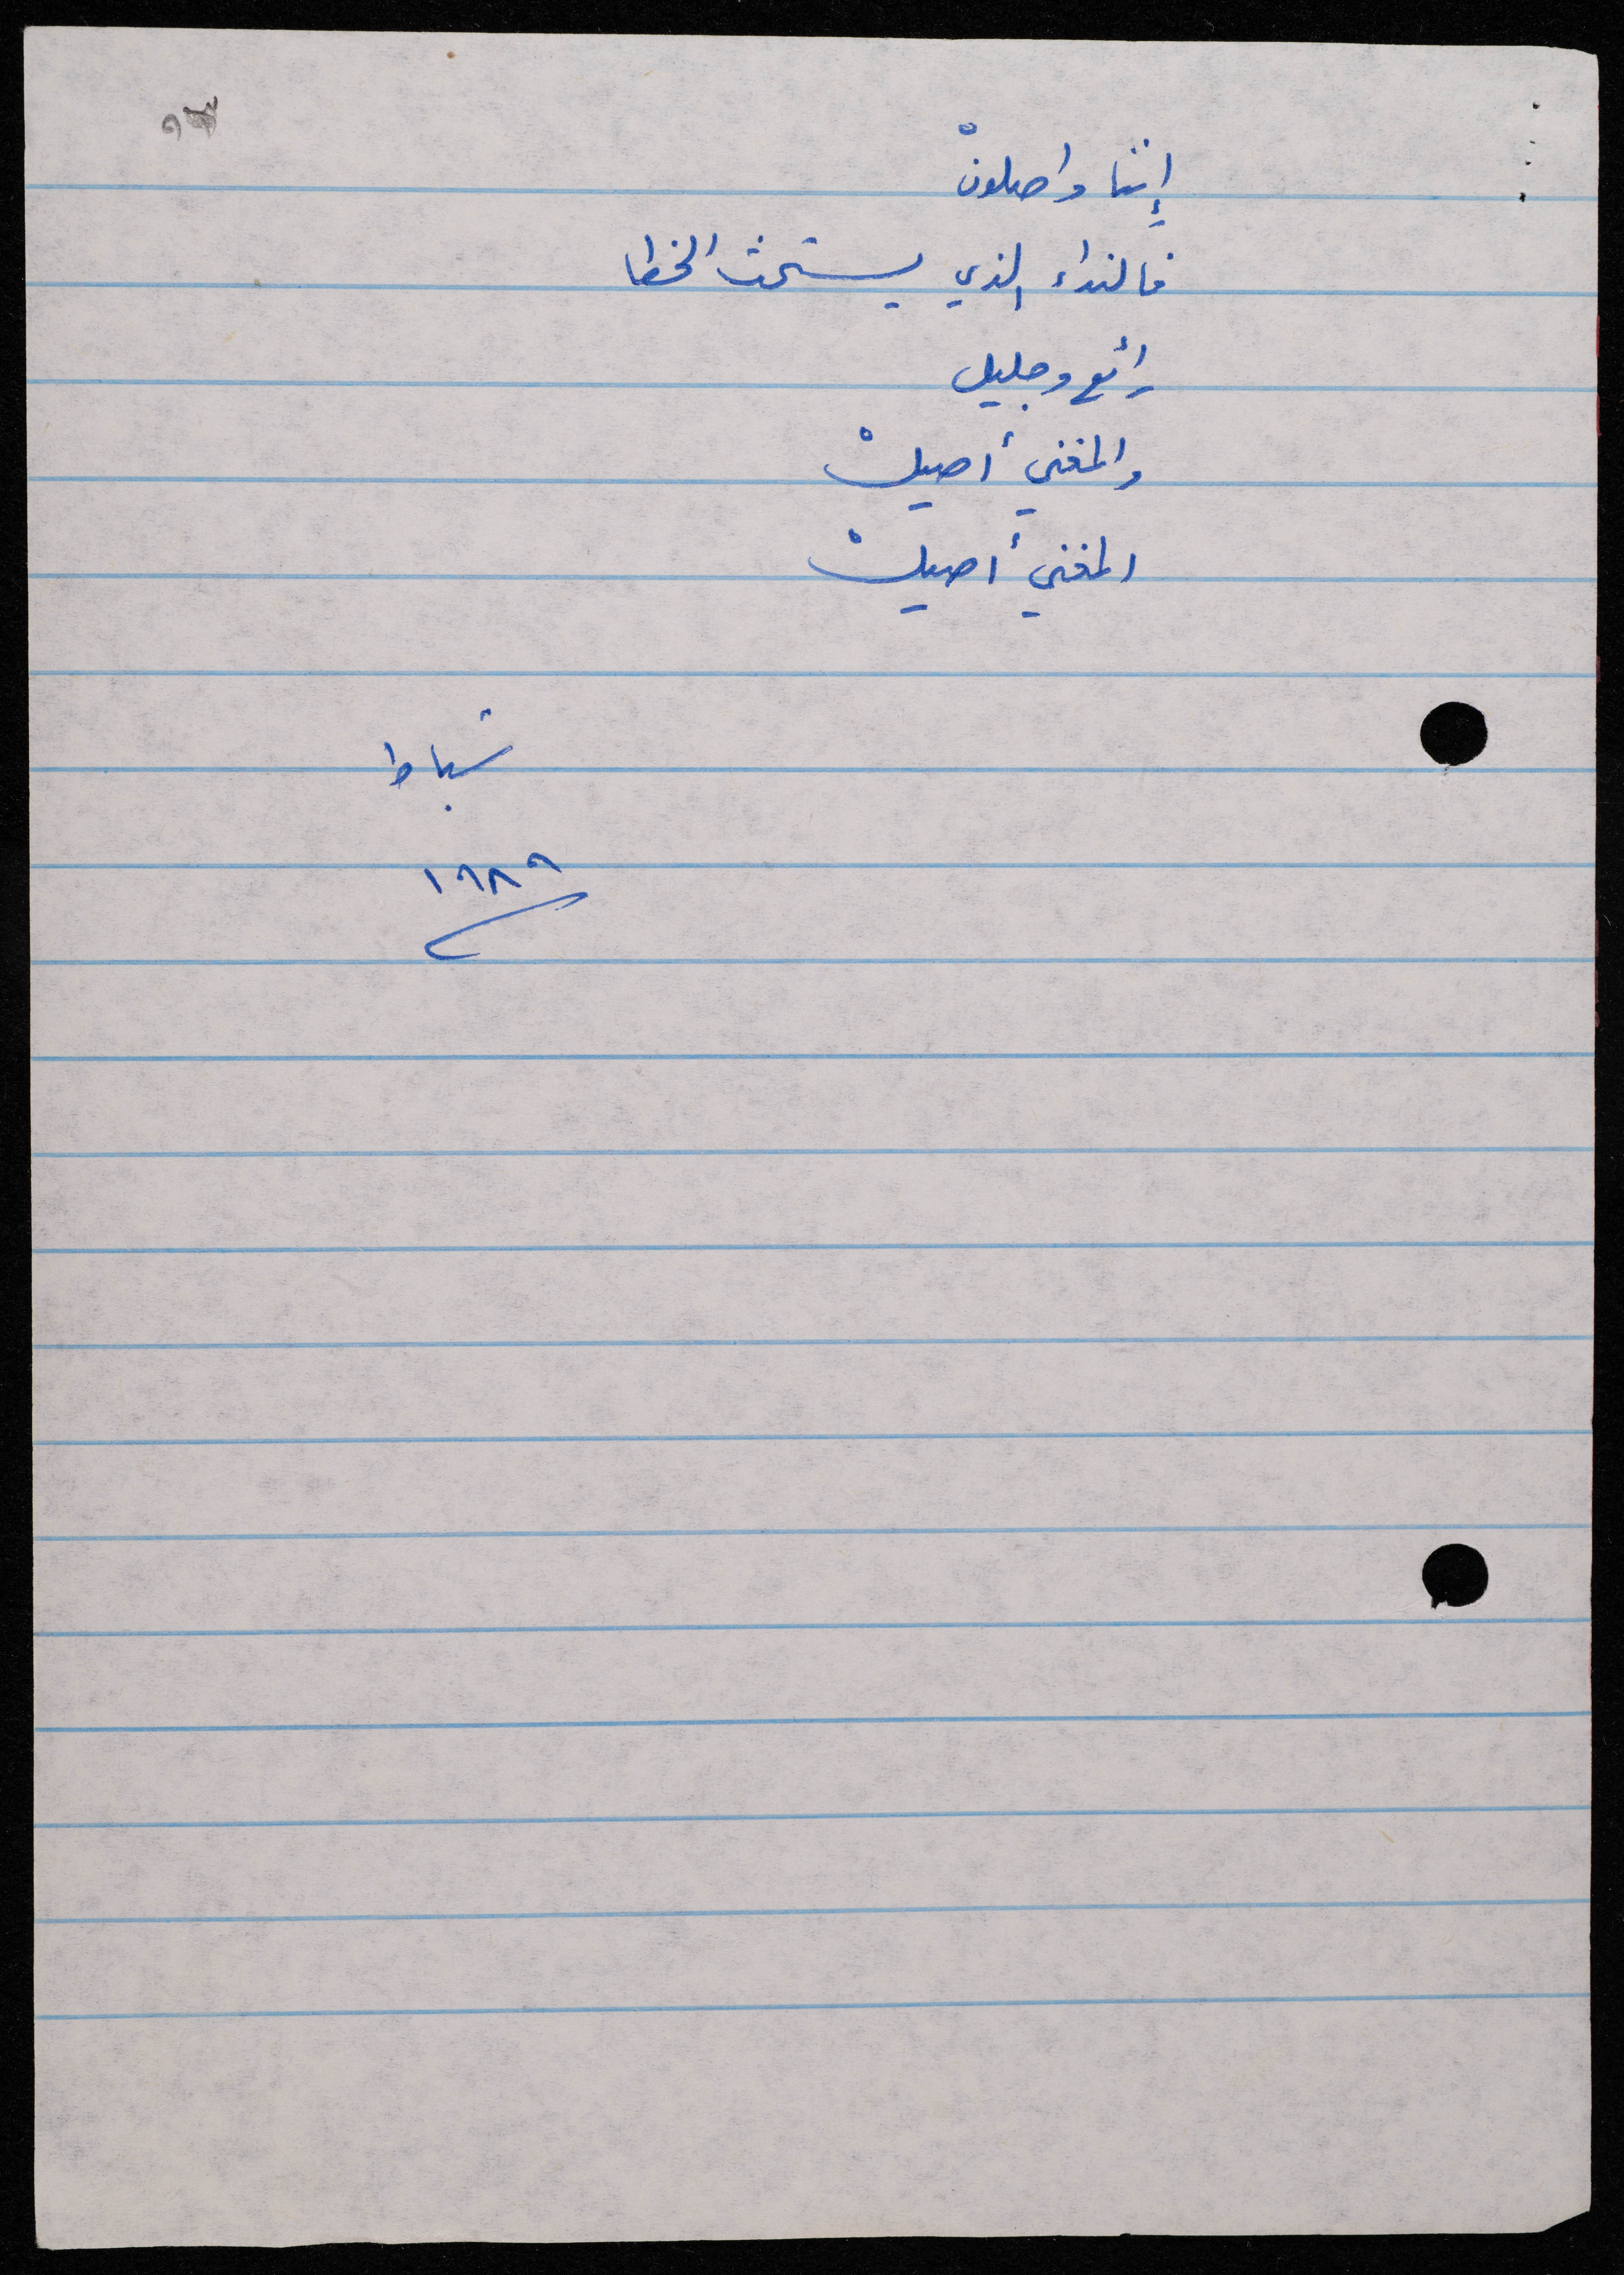 إننا واصلونْ
فالنداء الذي يستحث الخطا
رائع وجليل
والمغني أصيلْ
المغني أصيلْ
شباط
١٩٨٩